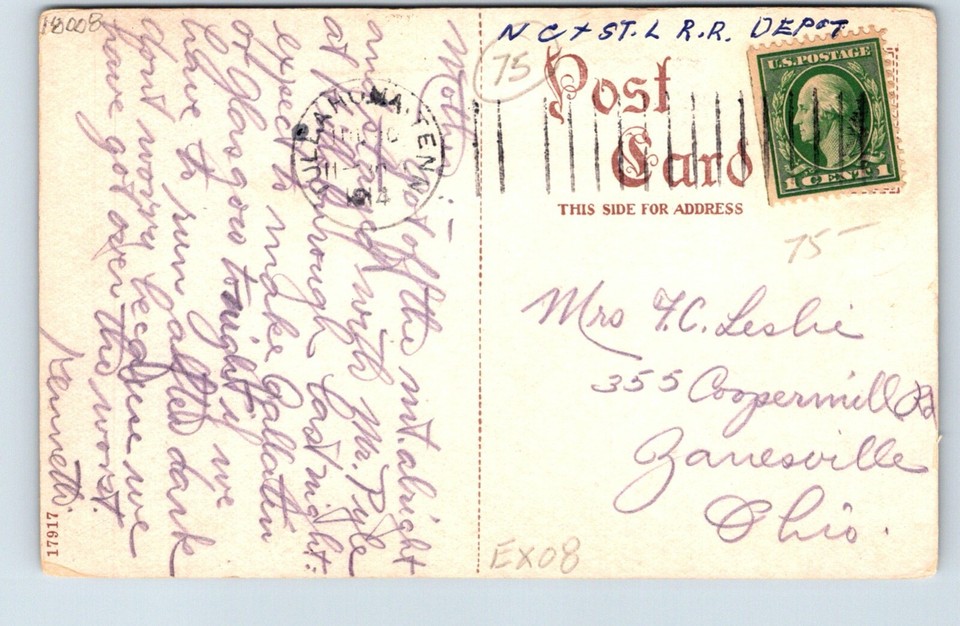 18008
N C & ST. L R.R. DEPOT
75
Post
Card
THIS SIDE FOR ADDRESS
U.S. POSTAGE
1 CENT 1
TULLAHOMA, TENN
1914
75-
Mrs F.C. Leslie
355 Coopermill Rd
Zanesville
Ohio.
EX08
17917
Mother:-
Got off the mt. alright
and stayed with Mr. Pyle
at last night.
expect to make Gallatin
or Glasgow tonight if we
have to run after dark
dont worry because we
have got over the worst.
Kenneth.